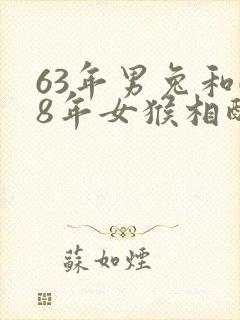 63年男兔和
8年女猴相
蘇如煙